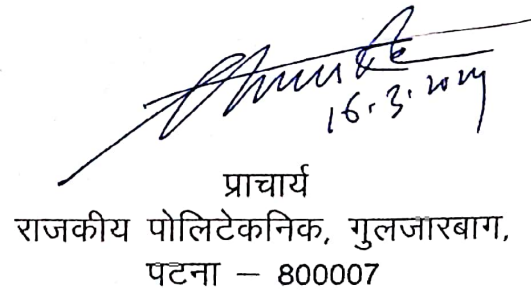 16.3.2024
प्राचार्य
राजकीय पोलिटेकनिक, गुलजारबाग,
पटना – 800007